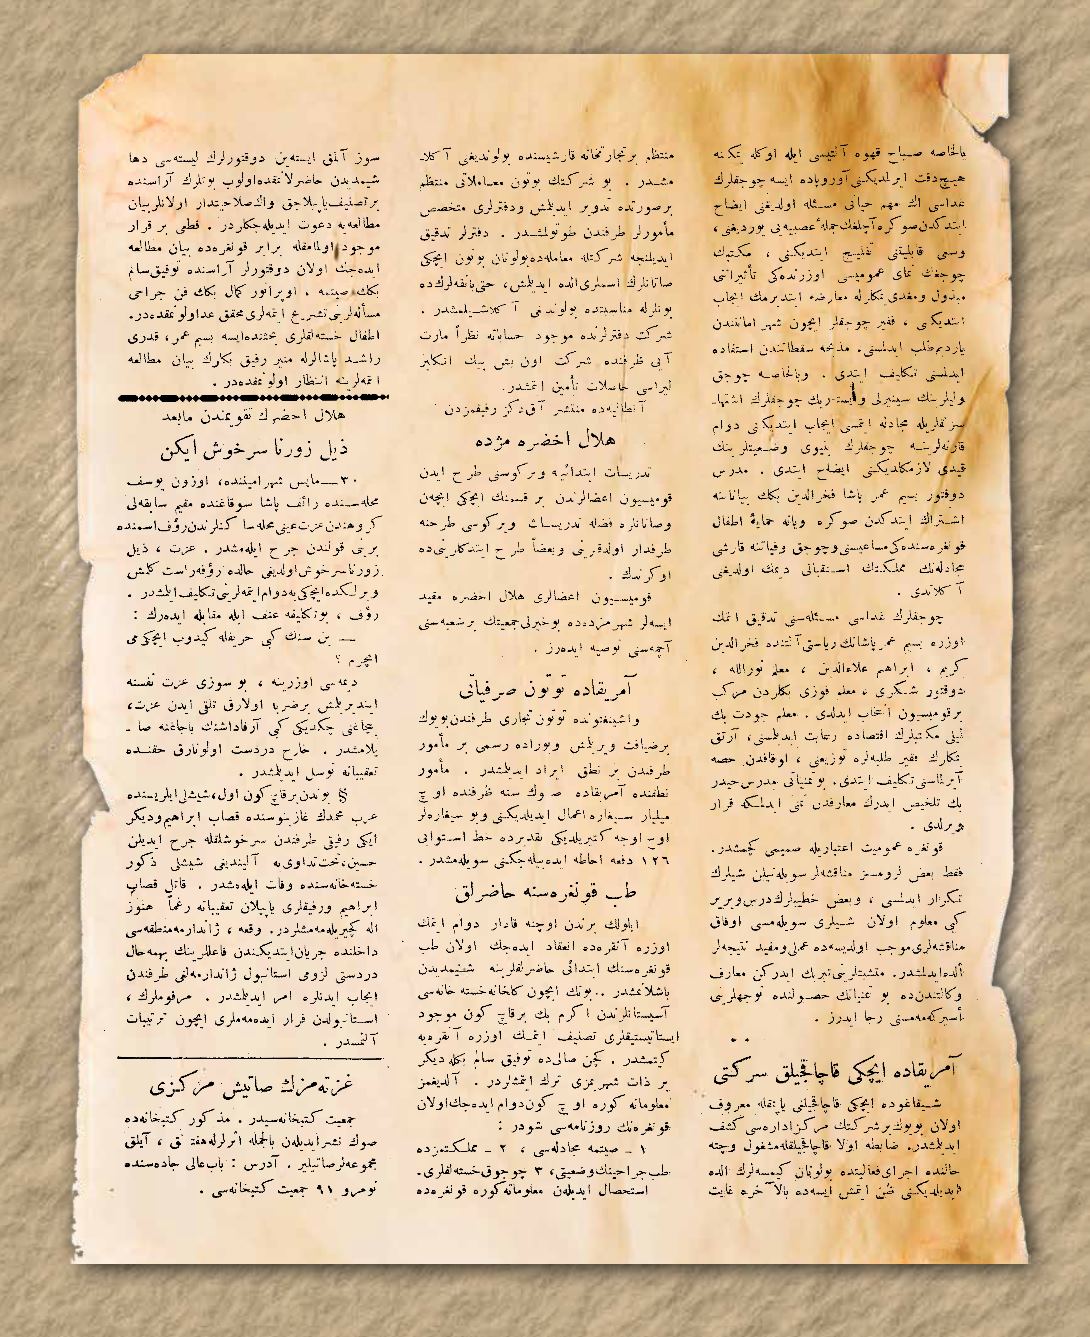 بالخاصه صباح قهوه آلتیسی ایله اوکله یمکنه
هیچ دقت ایدلمدیکنی آوروپاده ایسه چوجقلرك
غداسی اك مهم حیاتی مسئله اولدیغنی ایضاح
ایتدکدن صوکره آچلغك جملهٔ عصبیه‌یی یوردیغنی،
وسعی قابلیتنی تفلیج ایتدیکنی ، مکتبك
چوجغك نمای عمومیسی اوزرنده‌کی تأثیراتنی
ایتدیکنی ، فقیر چوجقلر ایچون شهر امانتندن
یاردم طلب ایدلمسنی. مذبحه سقطاتندن استفاده
ایدلمسنی تکلیف ایتدی . وبالخاصه چوجق
سزلقلریله مجادله ایتمسی ایجاب ایتدیکنی دوام
قیدی لازمکلدیکنی ایضاح ایتدی . مدرس
دوقتور بسیم عمر پاشا فخرالدین بکك بیاناتنه
اشتراك ایتدکدن صوکره ویانه حمایهٔ اطفال
قونغره‌سنده‌کی مساعیسنی وچوجق وفیاتنه قارشی
مجادله‌نك مملکتك استقبالی دیمك اولدیغنی
آکلاتدی .
چوجقلرك غداسی مسئله‌سنی تدقیق ایتمك
اوزره بسیم عمر پاشانك ریاستی آلتنده فخرالدین
کریم ، ابراهیم علاءالدین ، معلم نورالله ،
دوقتور شکری ، معلم فوزی بکلردن مرکب
برقومیسیون انتخاب ایدلدی . معلم جودت بك
لیلی مکتبلرك اقتصاده رعایت ایدیلمسنی، آرتق
یمکلرك فقیر طلبه‌لره توزیعنی ، اوقافدن حصه
آیرلماسنی تکلیف ایتدی. بوتمنیاتی مدرس حیدر
بك تلخیص ایدرك معارفدن تمنی ایدلمسکه قرار
ویرلدی .
قونغره عمومیت اعتباریله صمیمی کچمشدر.
فقط بعض لزومسز مناقشه‌لر سویله‌نیلن شیلرك
تکرار ایدلمسی ، وبعض خطیبلرك درس ویریر
کبی معلوم اولان شیلری سویله‌مسی اوفاق
مناقشه‌لری موجب اولدیسه‌ده عملی ومفید نتیجه‌لر
ألده ایدلمشدر. متشبثلرینی تبریك ایدرکن معارف
وکالتندن‌ده بو تمنیاتك حصولنده توجهلرینی
أسیرکه‌مه‌مسنی رجا ایدرز .
آمریقاده ایچکی قاچاقچیلق شرکتی
شیقاغوده ایچکی قاچاقچیلغی یاپمقله معروف
اولان بویوك برشرکتك مرکز اداره‌سی کشف
ایدیلمشدر. ضابطه اولا قاچاقچیلقله مشغول وچته
حالنده اجرای فعالیتده بولونان کیمسه‌لرك الده
ایدیلدیکنی ظن ایتمش ایسه‌ده بالآخره غایت
منتظم برتجارتخانه قارشیسنده بولوندیغی آکلا-
مشدر . بو شرکتك بوتون معاملاتی منتظم
برصورتده تدویر ایدیلمش ودفترلری متخصص
مأمورلر طرفندن طوتولمشدر . دفترلر تدقیق
ایدیلنجه شرکتله معامله‌ده بولونان بوتون ایچکی
صاتانلرك اسملری الده ایدیلمش، حتی بانقه‌لرك‌ده
بونلرله مناسبتده بولوندیغی آکلاشیلمشدر .
شرکت دفترلرنده موجود حساباته نظراً مارت
آیی ظرفنده شرکت اون بش بیك انکلیز
لیراسی حاصلات تأمین ایتمشدر.
آنطالیه‌ده منتشر آق‌دکز رفیقمزدن
هلال اخضره مژده
تدریسات ابتدائیه ویرکوسنی طرح ایدن
قومیسیون اعضالرندن بر قسمنك ایچکی ایچه‌ن
وصاتانلره فضله تدریسات ویرکوسی طرحنه
طرفدار اولدقرینی وبعضاً طرح ایتدکلرینی‌ده
اوکرندك .
قومیسیون اعضالری هلال اخضره مقید
ایسه‌لر شهرمزده‌ده بو خیرلی جمعیتك برشعبه‌سنی
آچمه‌سنی توصیه ایده‌رز .
آمریقاده توتون صرفیاتی
واشینغتونده توتون تجاری طرفندن بویوك
برضیافت ویرلمش وبوراده رسمی بر مأمور
طرفندن بر نطق ایراد ایدیلمشدر . مأمور
نطقنده آمریقاده صوك سنه ظرفنده اوچ
میلیار سیغاره اعمال ایدیلدیکنی وبو سیغاره‌لر
اوج اوجه کتیریلدیکی تقدیرده خط استوائی
۱۲۶ دفعه احاطه ایده‌بیله‌جکنی سویله‌مشدر .
طب قونغره‌سنه حاضرلق
ایلولك برندن اوچنه قادار دوام ایتمك
اوزره آنقره‌ده انعقاد ایده‌جك اولان طب
قونغره‌سنك ابتدائی حاضرلقلرینه شیمدیدن
باشلانمشدر .. بونك ایچون کلخانه خسته خانه‌سی
آسیستانلرندن اکرم بك برقاچ کون موجود
ایستاتیستیقلری تصنیف ایتمك اوزره آنقره‌یه
کیتمشدر . کچن صالی‌ده توفیق سالم بکله دیکر
بر ذات شهریمزی ترك ایتمشلردر. آلدیغمز
معلوماته کوره اوچ کون دوام ایده‌جك اولان
قونغره‌نك روزنامه‌سی شودر :
۱ ــ صیتمه مجادله‌سی ، ۲ ــ مملکتمزده
طب جراحینك وضعیتی، ۳ چوجوق خسته‌لقلری.
استحصال ایدیلن معلوماته کوره قونغره‌ده
سوز آلمق ایسته‌ین دوقتورلرك لیسته‌سی دها
شیمدیدن حاضرلانمقده اولوب بونلرك آراسنده
برتصنیف یاپیلاجق واك صلاحیتدار اولانلر بیان
مطالعه‌یه دعوت ایدیله‌جکلردر . قطعی بر قرار
موجود اولمامقله برابر قونغره‌ده بیان مطالعه
ایده‌جك اولان دوقتورلر آراسنده توفیق سالم
بکك صیتمه ، اوپراتور کمال بکك فن جراحی
مسأله‌لرینی تشریح ایتمه‌لری محقق عد اولونمقده‌در.
اطفال خسته‌لقلری بحثنده ایسه بسیم عمر، قدری
راشد پاشالرله منیر رفیق بکلرك بیان مطالعه
ایتمه‌لرینه انتظار اولونمقده‌در .
هلال اخضرك تقویمندن مابعد
ذیل زورنا سرخوش ایکن
۳۰ــ مایس شهرامیننده، اوزون یوسف
محله‌سنده رائف پاشا سوقاغنده مقیم سابقه‌لی
کروهندن عزت عینی محله سا کنلرندن رؤف اسمنده
برینی قولندن جرح ایله‌مشدر . عزت ، ذیل
زورنا سرخوش اولدیغی حالده رؤفه راست کلمش
وبرلکده ایچکی‌یه دوام ایتمه‌لرینی تکلیف ایلمشدر .
رؤف ، بوتکلیفه عنف ایله مقابله ایده‌رك :
ــ بن سنك کبی حریفله کیدوب ایچکی می
ایچرم ؟
دیمه‌سی اوزرینه ، بو سوزی عزت نفسنه
ایندیریلمش برضربه اولارق تلقی ایدن عزت،
بیچاغنی چکدیکی کبی آرقاداشنك باجاغنه صا -
پلامشدر . خارح دردست اولونارق حقنده
تعقیباته توسل ایدیلمشدر .
§ بوندن برقاچ کون اول، شیشلی ایلریسنده
عرب محمدك غازینوسنده قصاب ابراهیم ودیکر
ایکی رفیقی طرفندن سرخوشلقله جرح ایدیلن
حسین، تحت تداوی‌یه آلیندیغی شیشلی ذکور
خسته‌خانه‌سنده وفات ایله‌مشدر . قاتل قصاب
ابراهیم ورفیقلری یاپیلان تعقیباته رغماً هنوز
اله کچیریله‌مه‌مشلردر. وقعه ، ژاندارمه منطقه‌سی
داخلنده جریان ایتدیکندن فاعللرینك بهمه‌حال
دردستی لزومی استانبول ژاندارمه‌لغی طرفندن
ایجاب ایدنلره امر ایدیلمشدر . مرقوملرك ،
استانبولدن فرار ایده‌مه‌ملری ایچون ترتیبات
آلنمشدر .
غزته‌مزك صاتیش مرکزی
جمعیت کتبخانه‌سیدر . مذکور کتبخانه‌ده
صوك نشر ایدیلن بالجمله اثرلرله هفته‌لق ، آیلق
مجموعه‌لر صاتیلیر . آدرس : باب عالی جاده‌سنده
نومرو ۹۱ جمعیت کتبخانه‌سی .